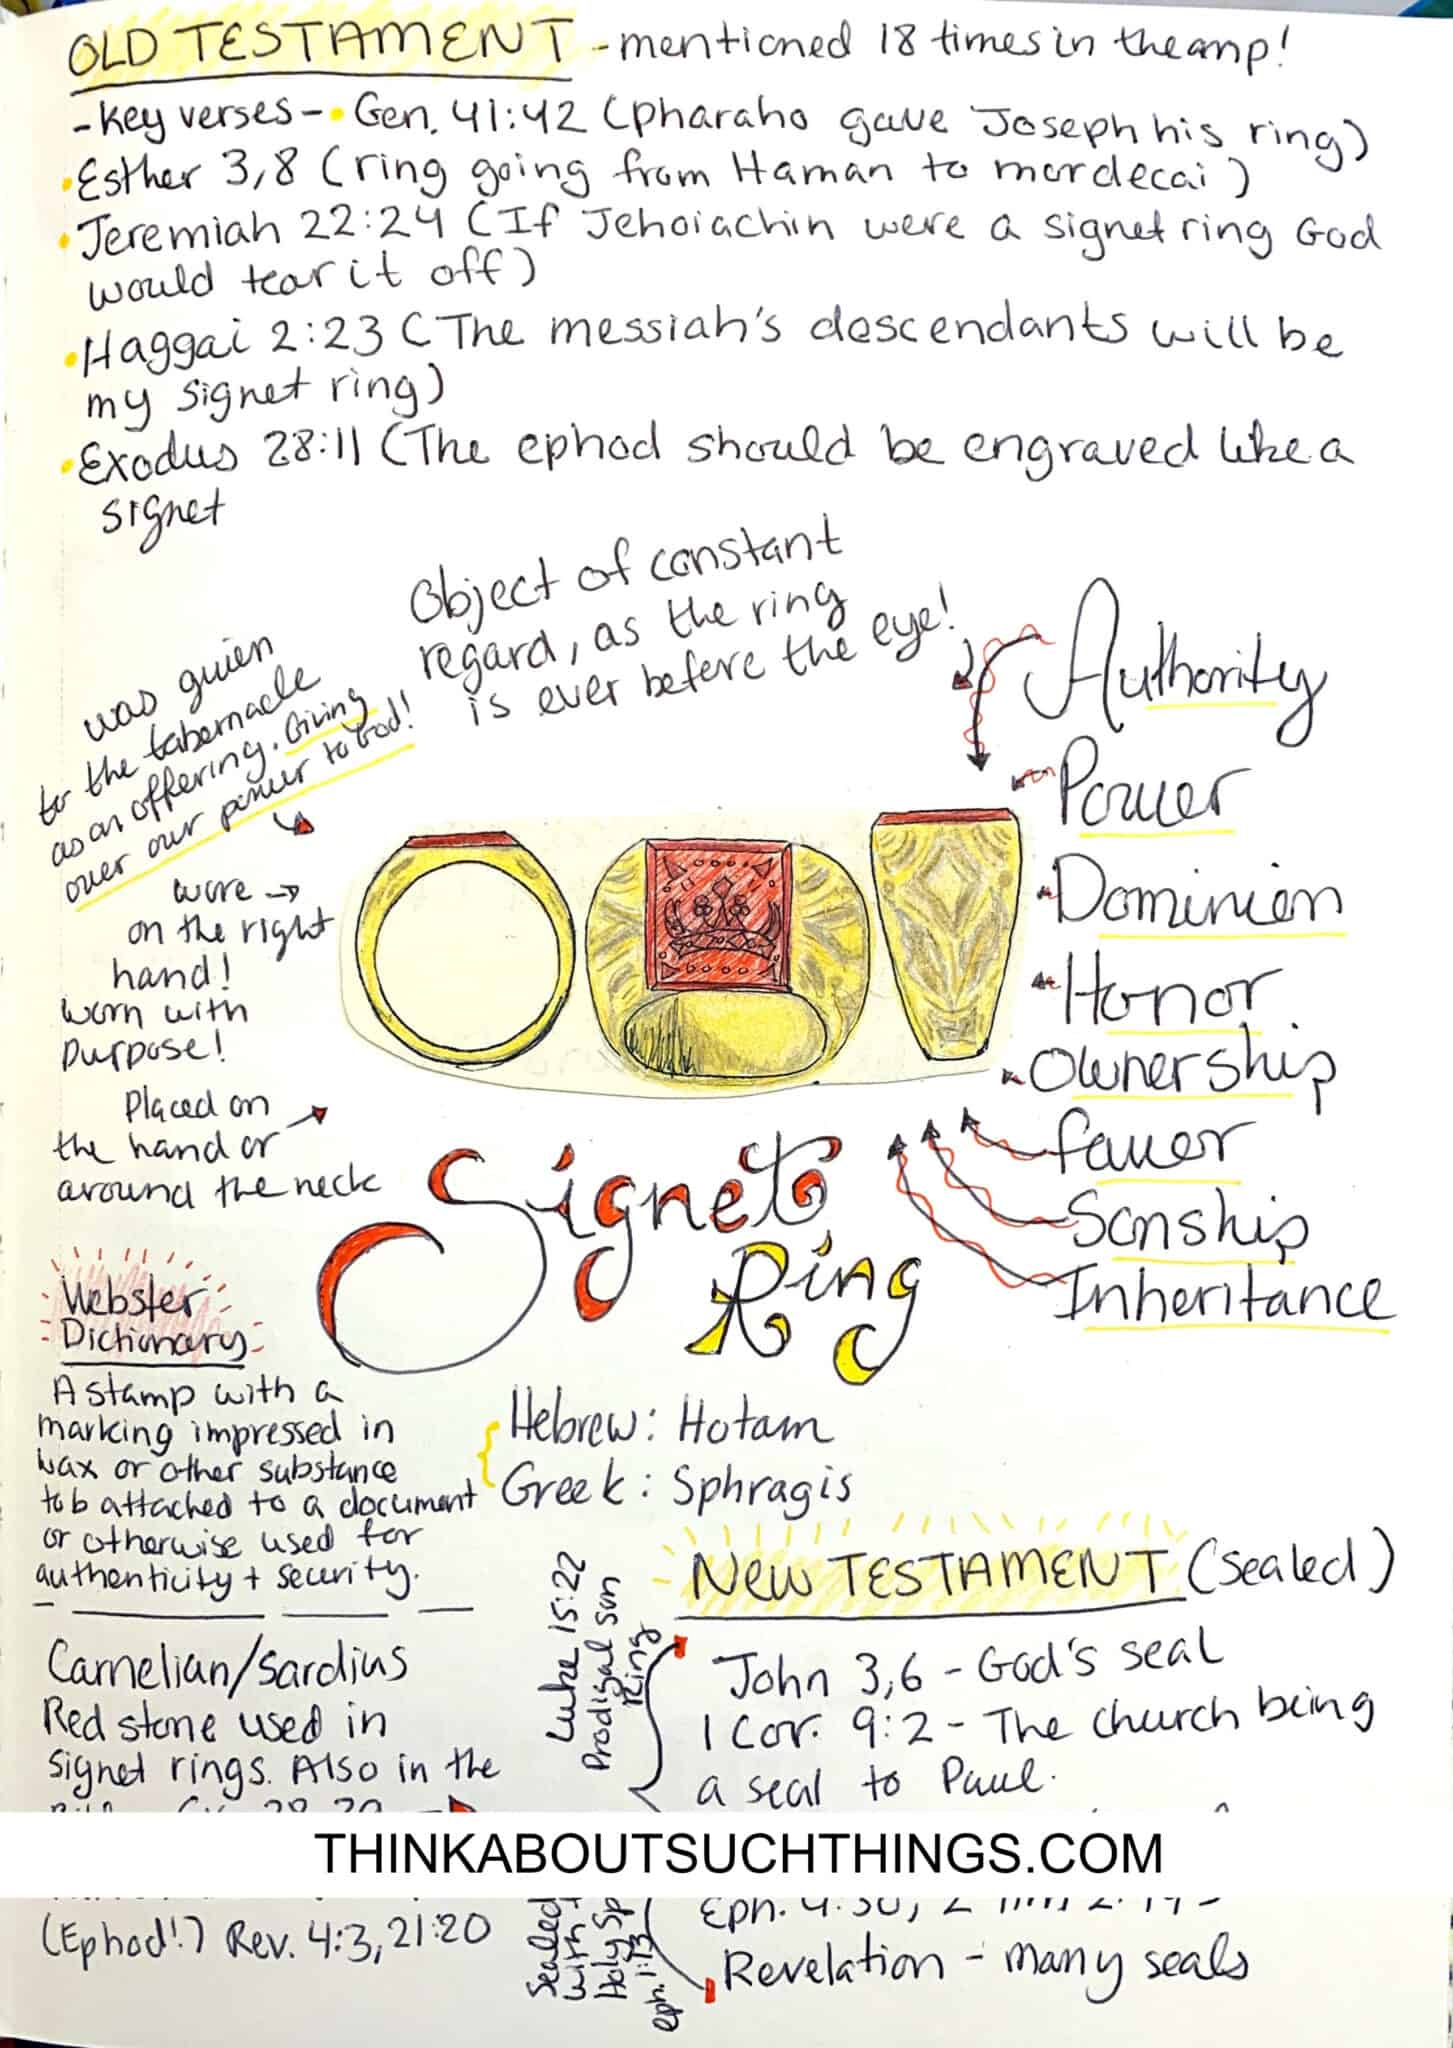 OLD TESTAMENT - mentioned 18 times in the amp!
- key verses - • Gen. 41:42 (pharaho gave Joseph his ring)
• Esther 3,8 (ring going from Haman to mordecai)
• Jeremiah 22:24 (If Jehoiachin were a signet ring God
would tear it off)
• Haggai 2:23 (The messiah's descendants will be
my signet ring)
• Exodus 28:11 (The ephod should be engraved like a
signet
Object of constant
regard, as the ring
is ever before the eye!
was guien
to the tabernacle
as an offering. Giving
over our power to God!
wore →
on the right
hand!
worn with
purpose!
Placed on
the hand or
around the neck
Authority
Power
Dominion
Honor
Ownership
favor
Sonship
Inheritance
Signet
Ring
Webster
Dictionary
A stamp with a
marking impressed in
wax or other substance
to b attached to a document
or otherwise used for
authenticity + security.
Hebrew: Hotam
Greek: Sphragis
Carnelian/Sardius
Red stone used in
signet rings. Also in the
(Ephod!) Rev. 4:3, 21:20
NEW TESTAMENT (sealed)
Luke 15:22
Prodigal son
Ring
John 3,6 - God's seal
1 Cor. 9:2 - The church being
a seal to Paul.
THINKABOUTSUCHTHINGS.COM
Sealed
with
Holy Sp
eph. 1:13
Eph. 4:30, 2
Revelation - many seals